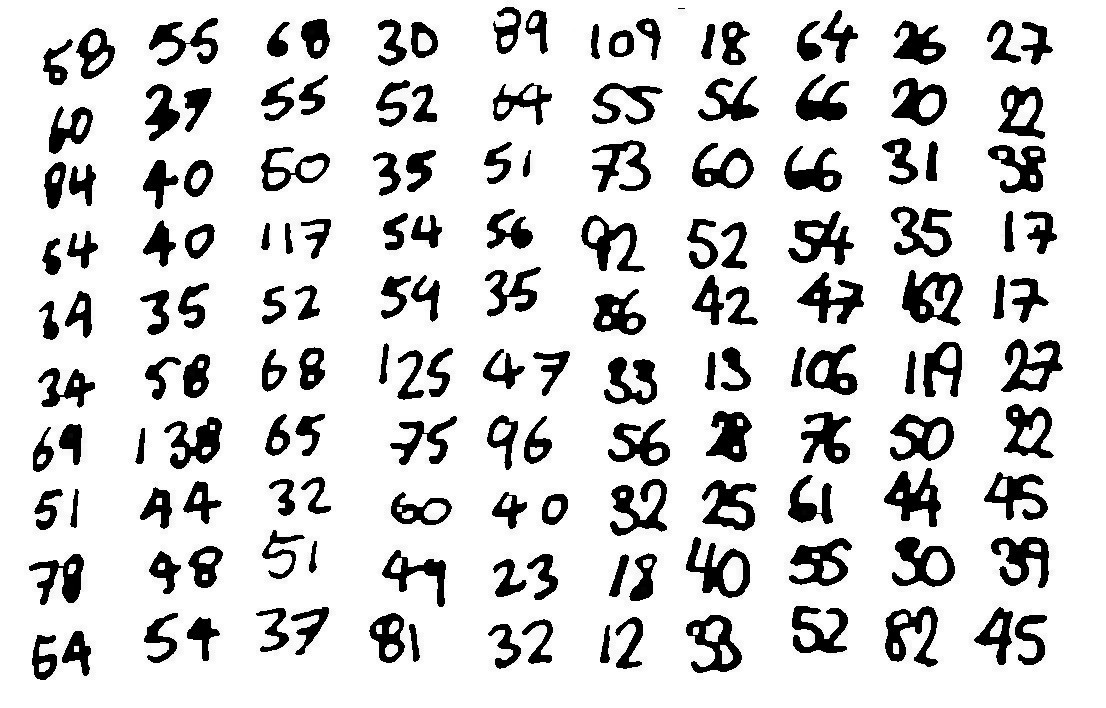 58 55 68 30 89 109 18 64 26 27
60 37 55 52 64 55 56 66 20 22
84 40 60 35 51 73 60 66 31 38
54 40 117 54 56 92 52 54 35 17
34 35 52 54 35 86 42 47 162 17
34 58 68 125 47 33 13 106 119 27
69 138 65 75 96 56 28 76 50 22
51 44 32 60 40 32 25 61 44 45
78 48 51 49 23 18 40 55 30 39
54 54 37 81 32 12 33 52 82 45